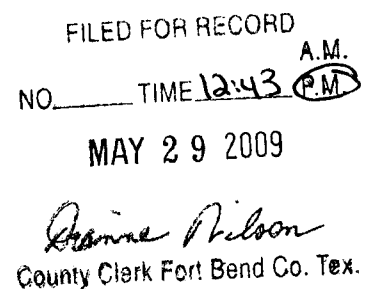 FILED FOR RECORD
A.M.
NO. TIME 12:43 P.M.
MAY 29 2009
Dianne Wilson
County Clerk Fort Bend Co. Tex.